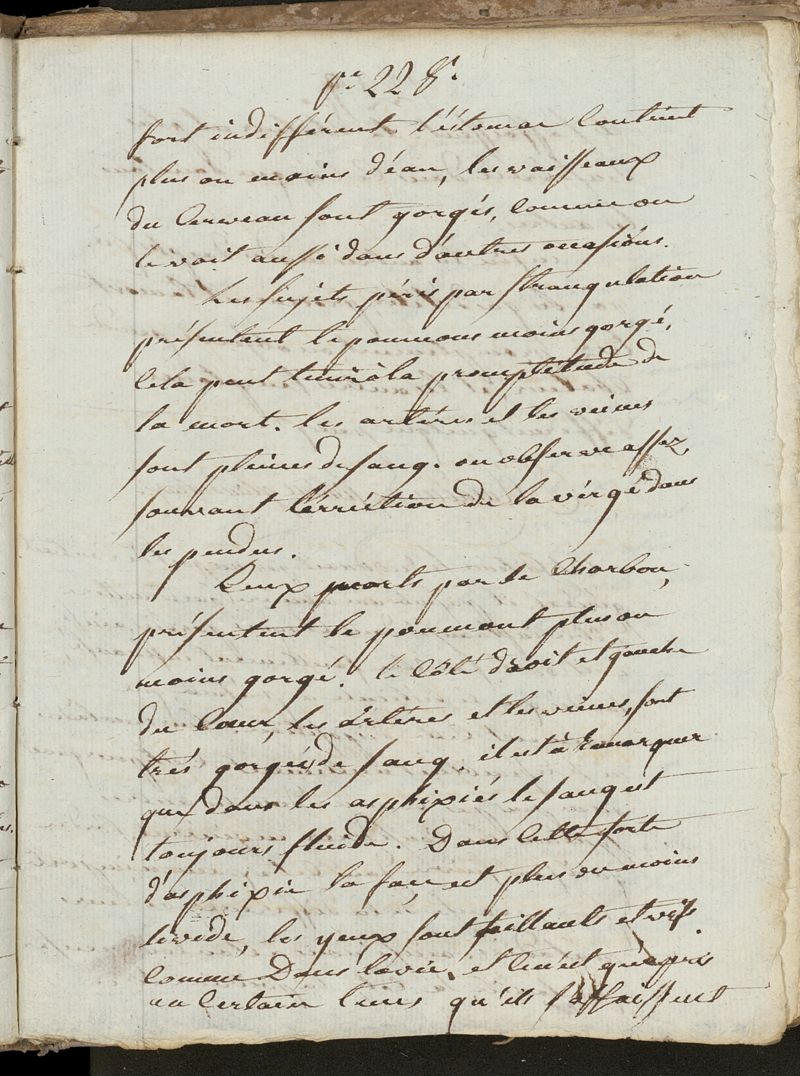 pe. 228.
fort indifférent. l'éstomac Contient
plus ou moins d'éau, les vaisseaux
du Cerveau sont gorgés, comme on
le voit aussi dans d'autres occasions.
Les sujets péris par strangulation
présentent le poumons moins gorgé,
Cela peut tenir à la promptitude de
la mort. les artères et les veines
sont pleines de sang. on observe assez
souvant l'érréction de la vérge dans
les pendus.
Ceux morts par le Charbon,
présentent le poumont plus ou
moins gorgé. le Côté droit et gauche
du Coeur, les artères et les veines, sont
trés gorgés de sang, il est à remarquer
que dans les asphixiés le sang est
toujours fluide. Dans cette sorte
d'asphixie la face est plus ou moins
livide, les yeux sont saillants et vifs
comme Dans la vie, et ce n'est qu'après
un Certain tems qu'ils s'affaissent